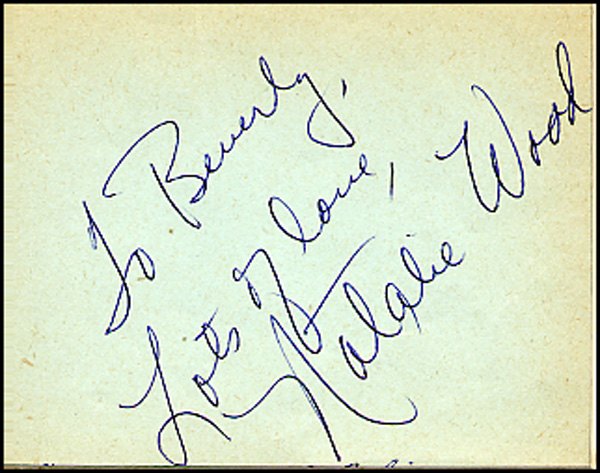 To Beverly,
Lots of love,
Natalie Wood